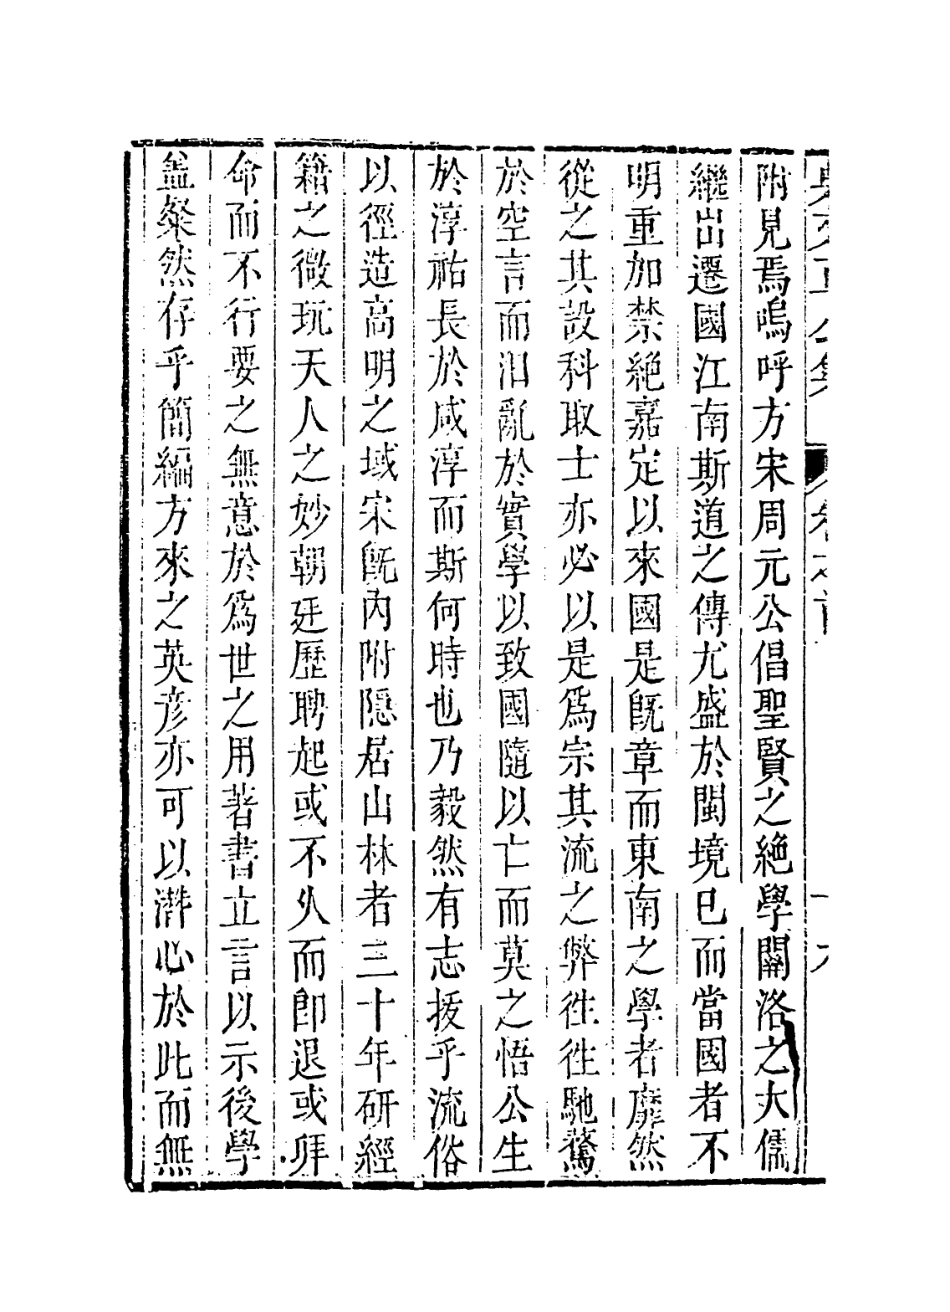 附見焉嗚呼方宋周元公倡聖賢之絶學關洛之大儒
繼出遷國江南斯道之傳尤盛於閩境已而當國者不
明重加禁絶嘉定以來國是旣章而東南之學者靡然
從之其設科取士亦必以是爲宗其流之弊徃徃馳騖
於空言而汩亂於實學以致國隨以亡而莫之悟公生
於淳祐長於咸淳而斯何時也乃毅然有志拔乎流俗
以徑造高明之域宋旣內附隱居山林者三十年硏經
籍之微玩天人之妙朝廷歷聘起或不久而即退或拜
命而不行要之無意於爲世之用著書立言以示後學
盖粲然存乎簡編方來之英彥亦可以潛心於此而無